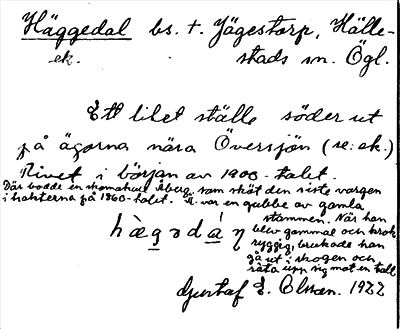 Häggedal bs. t. Jägestorp, Hälle-
ek. stads sn. Ögl.
Ett litet ställe söder ut
på ägorna nära Översjön (se: ek.)
Rivet i början av 1900-talet.
Där bodde en skomakare Åberg, som sköt den siste vargen
i trakterna på 1860-talet. Å. var en gubbe av gamla
stammen. När han
blev gammal och krok-
ryggig, brukade han
gå ut i skogen och
räta upp sig mot en tall
hὲgədάη
Gustaf E. Olsson. 1922